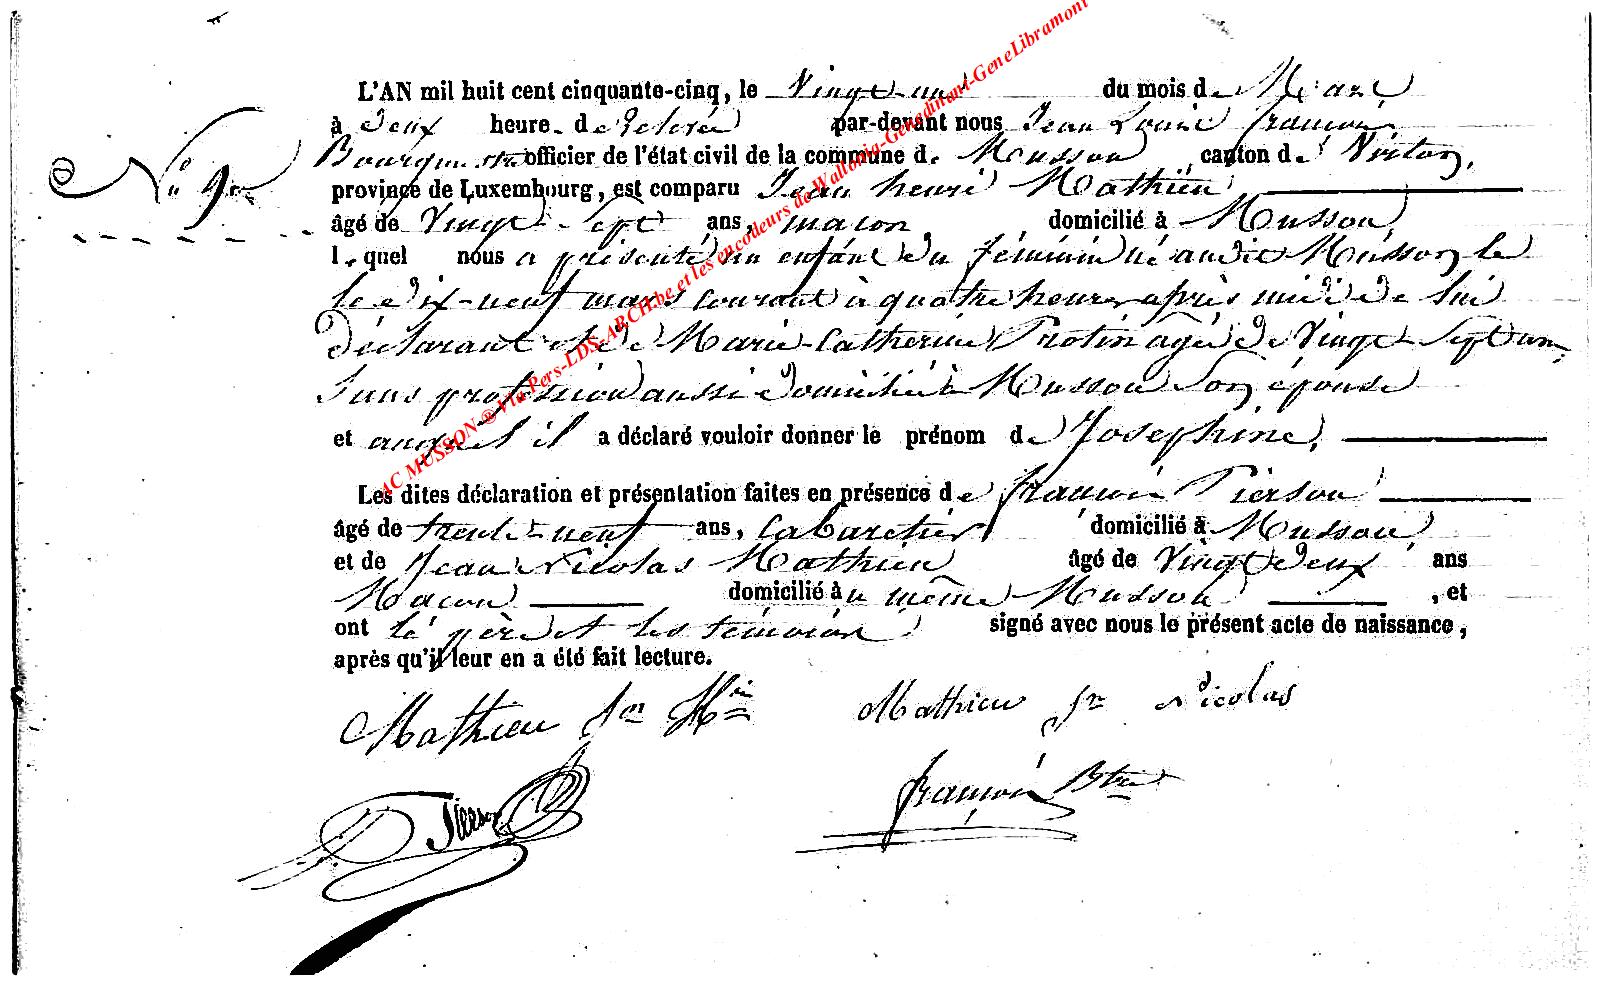 L'AN mil huit cent cinquante-cinq, le Vingt-un du mois de Mars
à deux heure. de relevée par-devant nous Jean Louis françois
Bourgmestre officier de l'état civil de la commune de Musson canton de Virton,
N° 9
province de Luxembourg, est comparu Jean henri Mathieu
âgé de Vingt-Sept ans, macon domicilié à Musson,
l.quel nous a présenté un enfant du féminin né audit Musson le
le dix-neuf mars courant à quatre heures après midi de lui
déclarant et de Marie-Catherine Protin agée de Vingt-Sept ans,
sans profession aussi domiciliée à Musson son épouse
et auquel il a déclaré vouloir donner le prénom de Josephine,
Les dites déclaration et présentation faites en présence de françois Pierson
âgé de trente-neuf ans, Cabaretier domicilié à Musson,
et de Jean Nicolas Mathieu âgé de Vingt deux ans
Macon domicilié au même Musson, et
ont le père et les témoins signé avec nous le présent acte de naissance,
après qu'il leur en a été fait lecture.
Mathieu Jn Hri Mathieu Jn Nicolas
françois Btre
AC MUSSON ® Via Pers-LDS-ARCH.be et les encodeurs de Wallonia-Genedinant-GeneLibramont